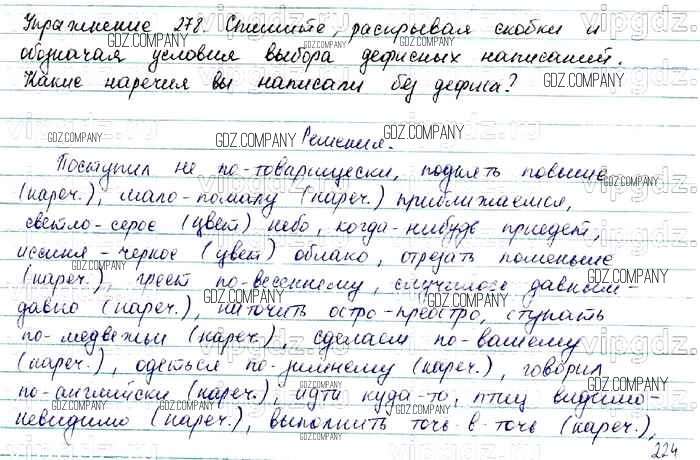 Упражнение 278. Спишите, раскрывая скобки и
обозначая условия выбора дефисных написаний.
Какие наречия вы написали без дефиса?
Решения.
Поступил не по-товарищески, поднять повыше
(нареч.), мало-помалу (нареч.) приближаемся,
светло-серое (цвет) небо, когда-нибудь приедет,
иссиня-черное (цвет) облако, отрезать поменьше
(нареч.), греет по-весеннему, случилось давным-
давно (нареч.), наточить остро-преостро, ступать
по-медвежьи (нареч.), сделаем по-вашему
(нареч.), одеться по-зимнему (нареч.), говорил
по-английски (нареч.), идти куда-то, птиц видимо-
невидимо (нареч.), выполнить точь-в-точь (нареч.),
224